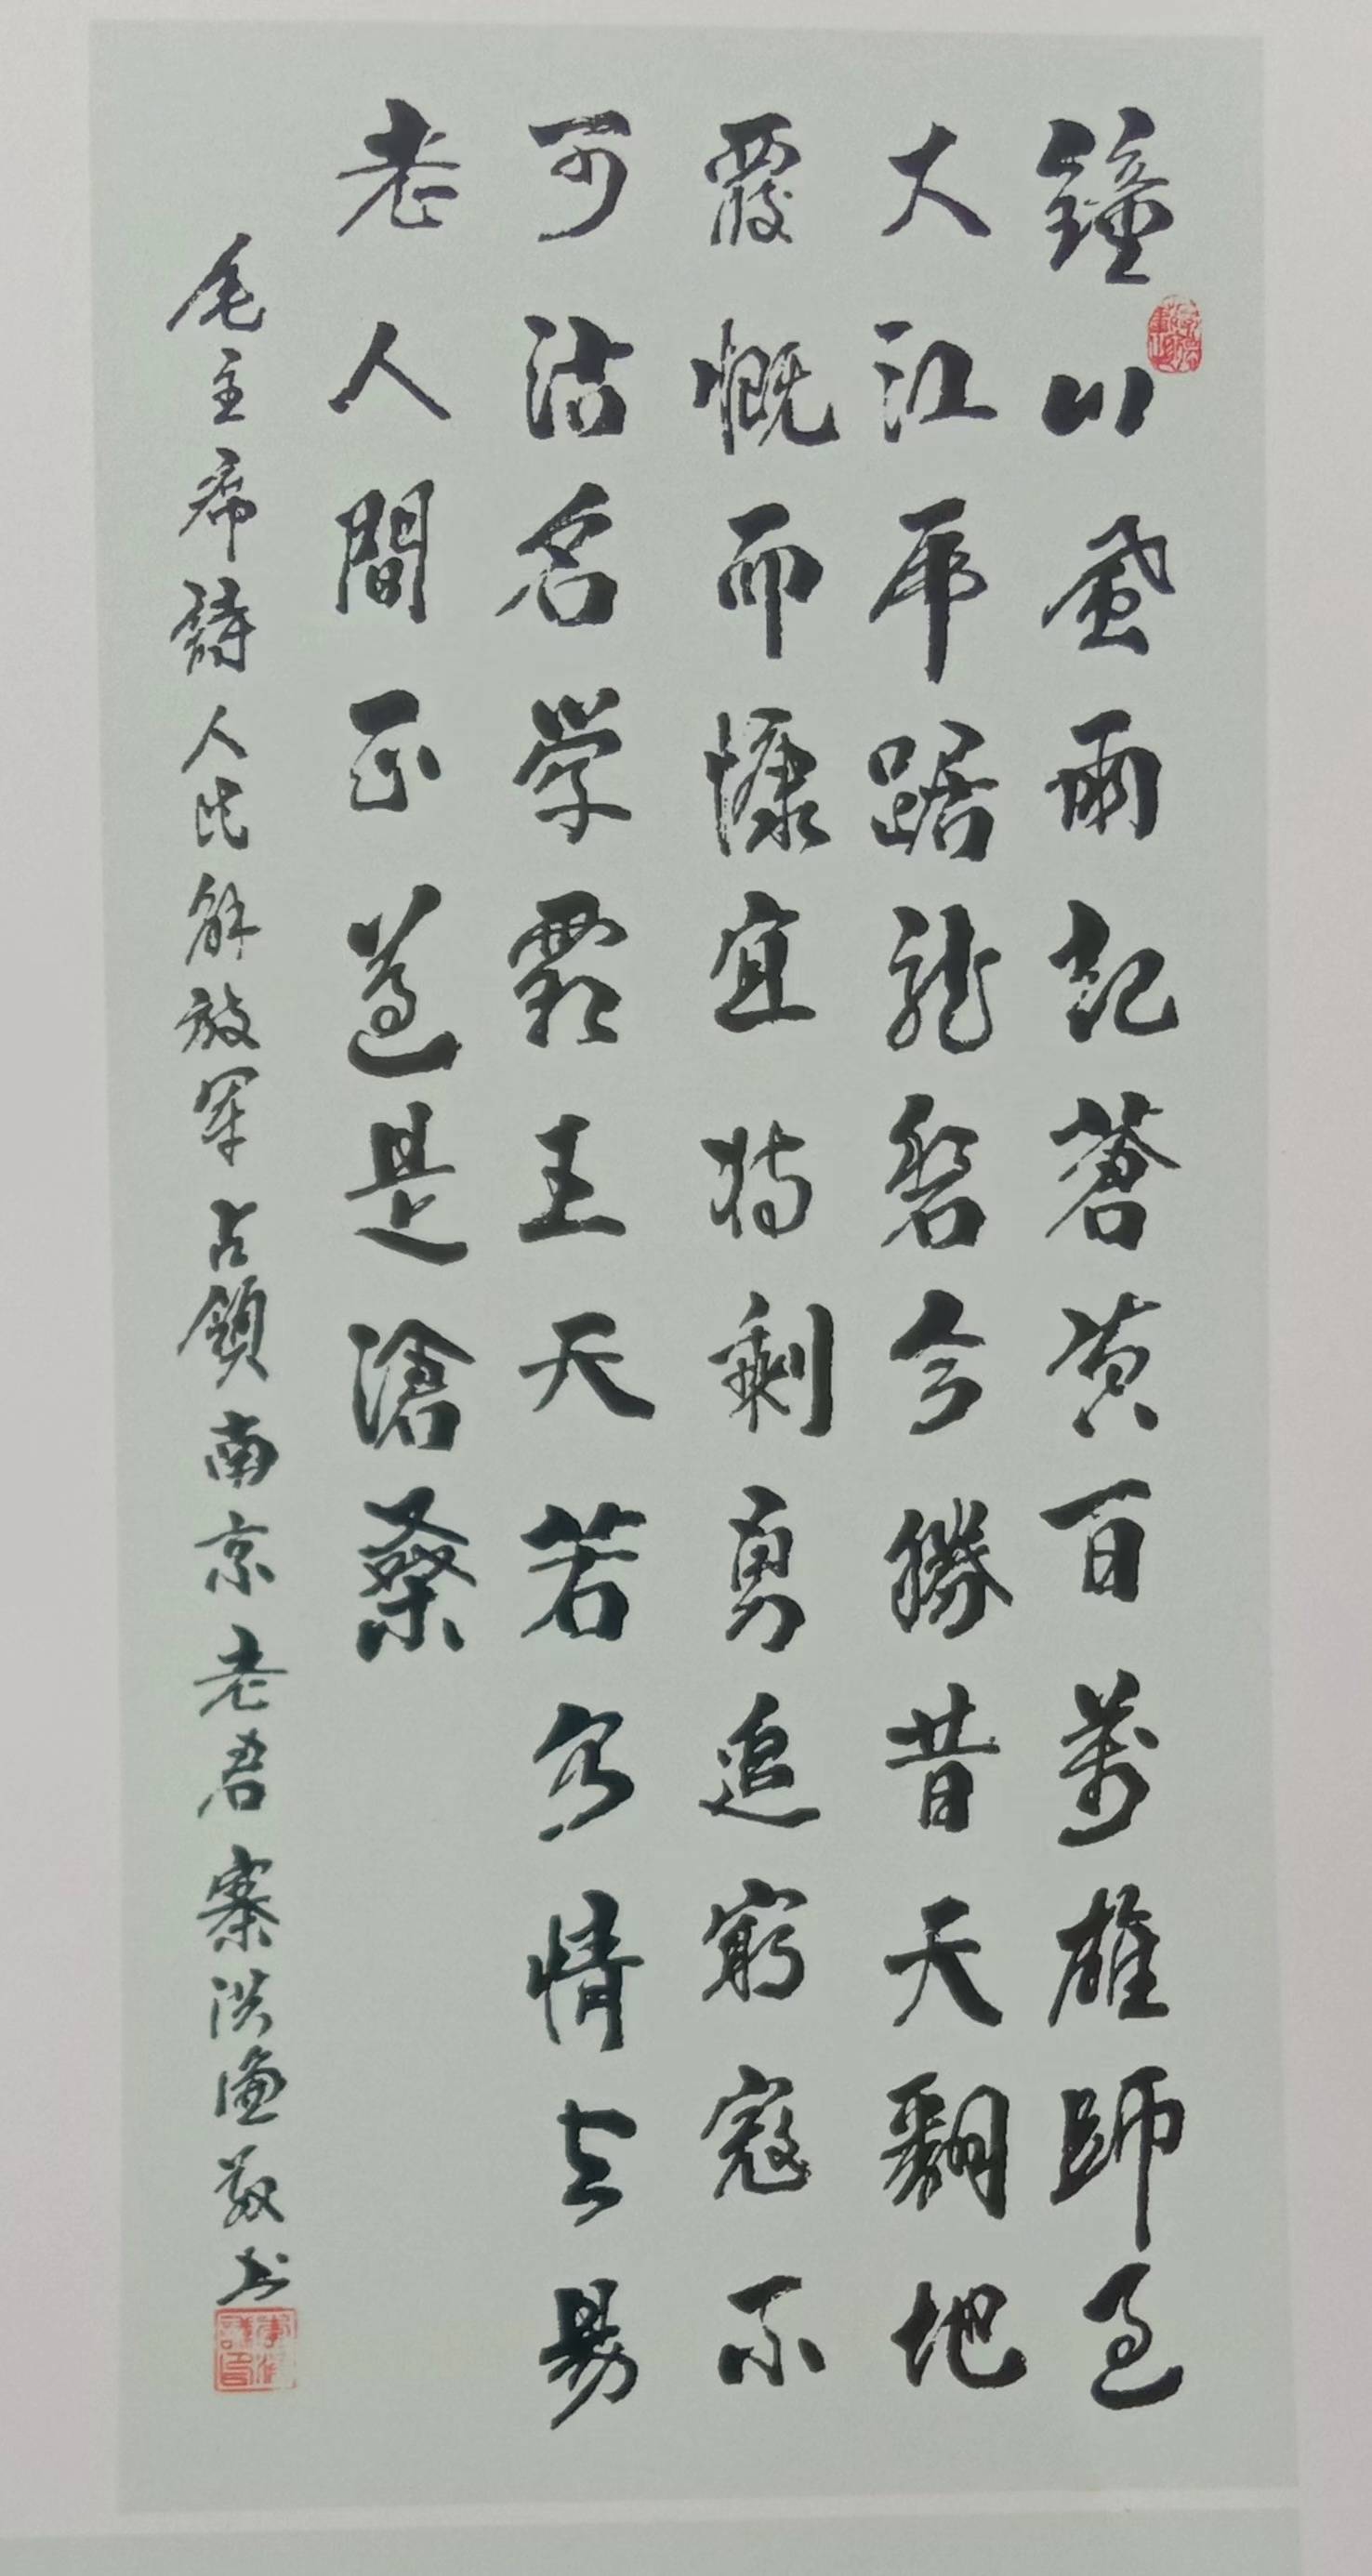 鐘山風雨起蒼黃百萬雄師過
大江虎踞龍磐今勝昔天翻地
覆慨而慷宜將剩勇追窮寇不
可沽名学霸王天若有情天易
老人間正道是滄桑
毛主席詩人民解放軍占領南京老君寨洪謙敬书